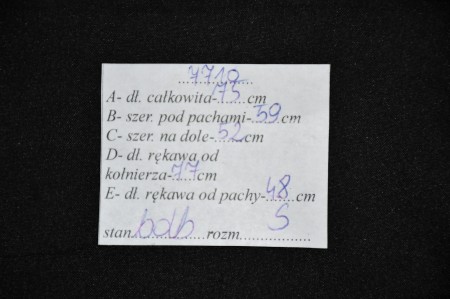 7710
A- dł. całkowita-75cm
B- szer. pod pachami-59cm
C- szer. na dole-52cm
D- dł. rękawa od
kołnierza-77cm
E- dł. rękawa od pachy-48cm
stan bdb rozm. S